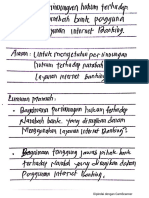 perlindungan hukum terhadap
nasabah bank pengguna
layanan internet Banking.
: Untuk mengetahui perlindungan
hukum terhadap nasabah
layanan internet banking
Rumusan Masalah:
• Bagaimana perlindungan hukum terhadap
Nasabah bank yang dirugikan dalam
Menggunakan layanan Internet Banking?
• Bagaimana tanggung jawab pihak bank
terhadap nasabah yang dirugikan dalam
Penggunaan Internet Banking.
Dipindai dengan CamScanner